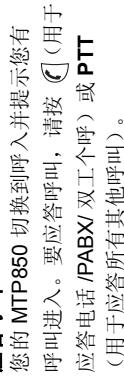 您的 MTP850 切换到呼入并提示您有
呼叫进入。要应答呼叫，请按 （用于
应答电话 /PABX/ 双工个呼）或 PTT
（用于应答所有其他呼叫）。